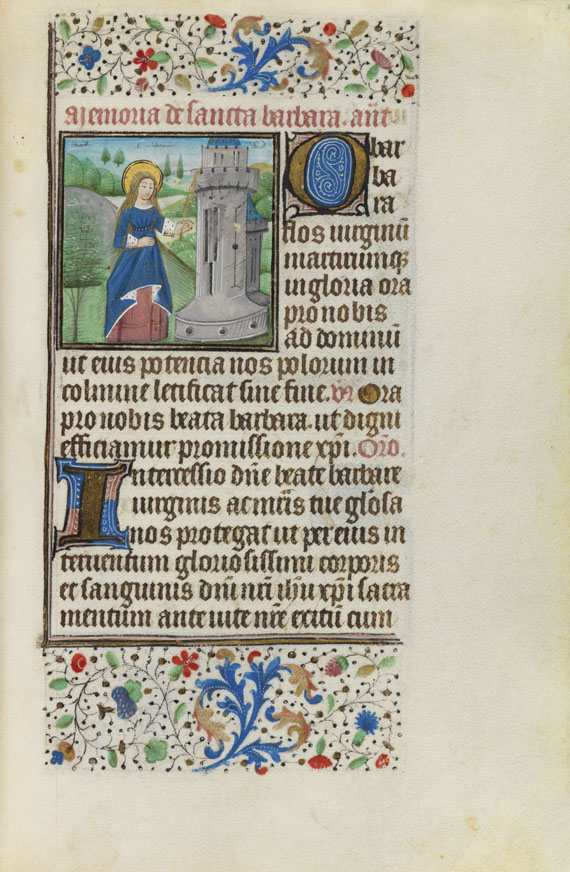 Memoria de sancta barbara. añt
O bar
ba
ra
flos virginũ
martirumqꝫ
in gloria ora
pro nobis
ad dominũ
ut eius potencia nos polorum in
colmine letificat sine fine. vͬ Ora
pro nobis beata barbara. ut digni
efficiamur promissione xp̃i. Or̃o.
Intercessio dñe beate barbare
uirginis ac mr̃is tue gl̃osa
nos protegat ut per eius in
teruentum gloriosissimi corporis
et sanguinis dñi nr̃i ihũ xp̃i sacra
mentum ante vite nr̃e exitũ cum